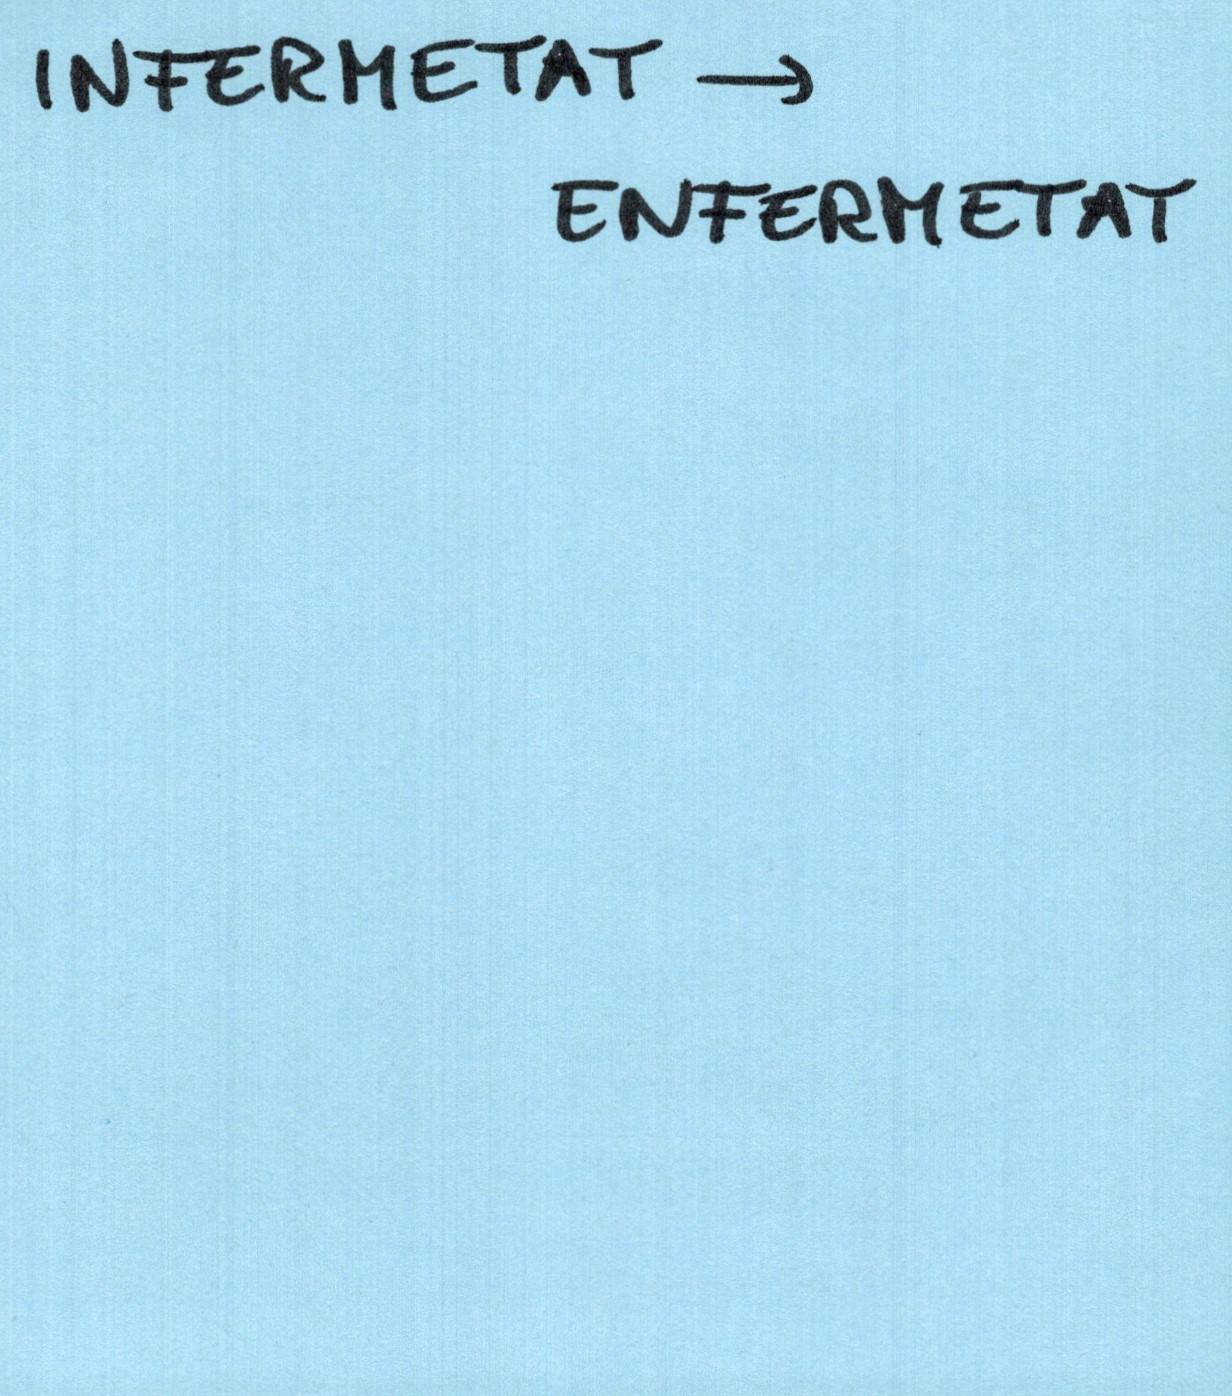 INFERMETAT →
ENFERMETAT